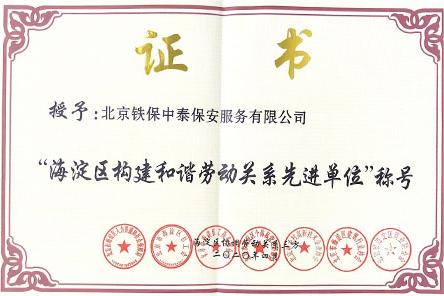 证书
授予:北京铁保中泰保安服务有限公司
“海淀区构建和谐劳动关系先进单位”称号
海淀区协调劳动关系三方
二〇二〇年四月